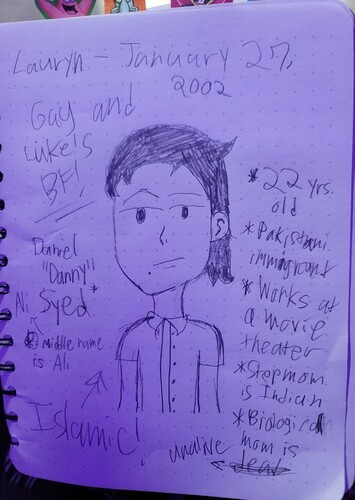 Lauryn - January 27,
2002
Gay and
Like's
BF!
Daniel
"Danny"
Ali Syed*
* middle name
is Ali
Islamic!
* 22 yrs.
old
* Pakistani
immigrant
* Works at
a movie
theater
* Stepmom
is Indian
* Biological
mom is
undive dead